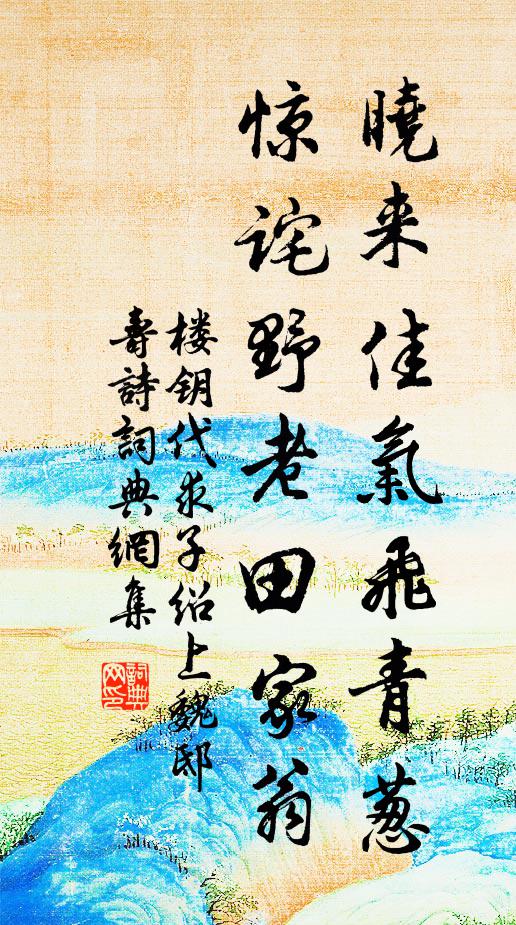 曉来佳氣飛青葱
惊詫野老田家翁
楼钥代求子绍上魏邸
壽詩詞典網集
詞典网印